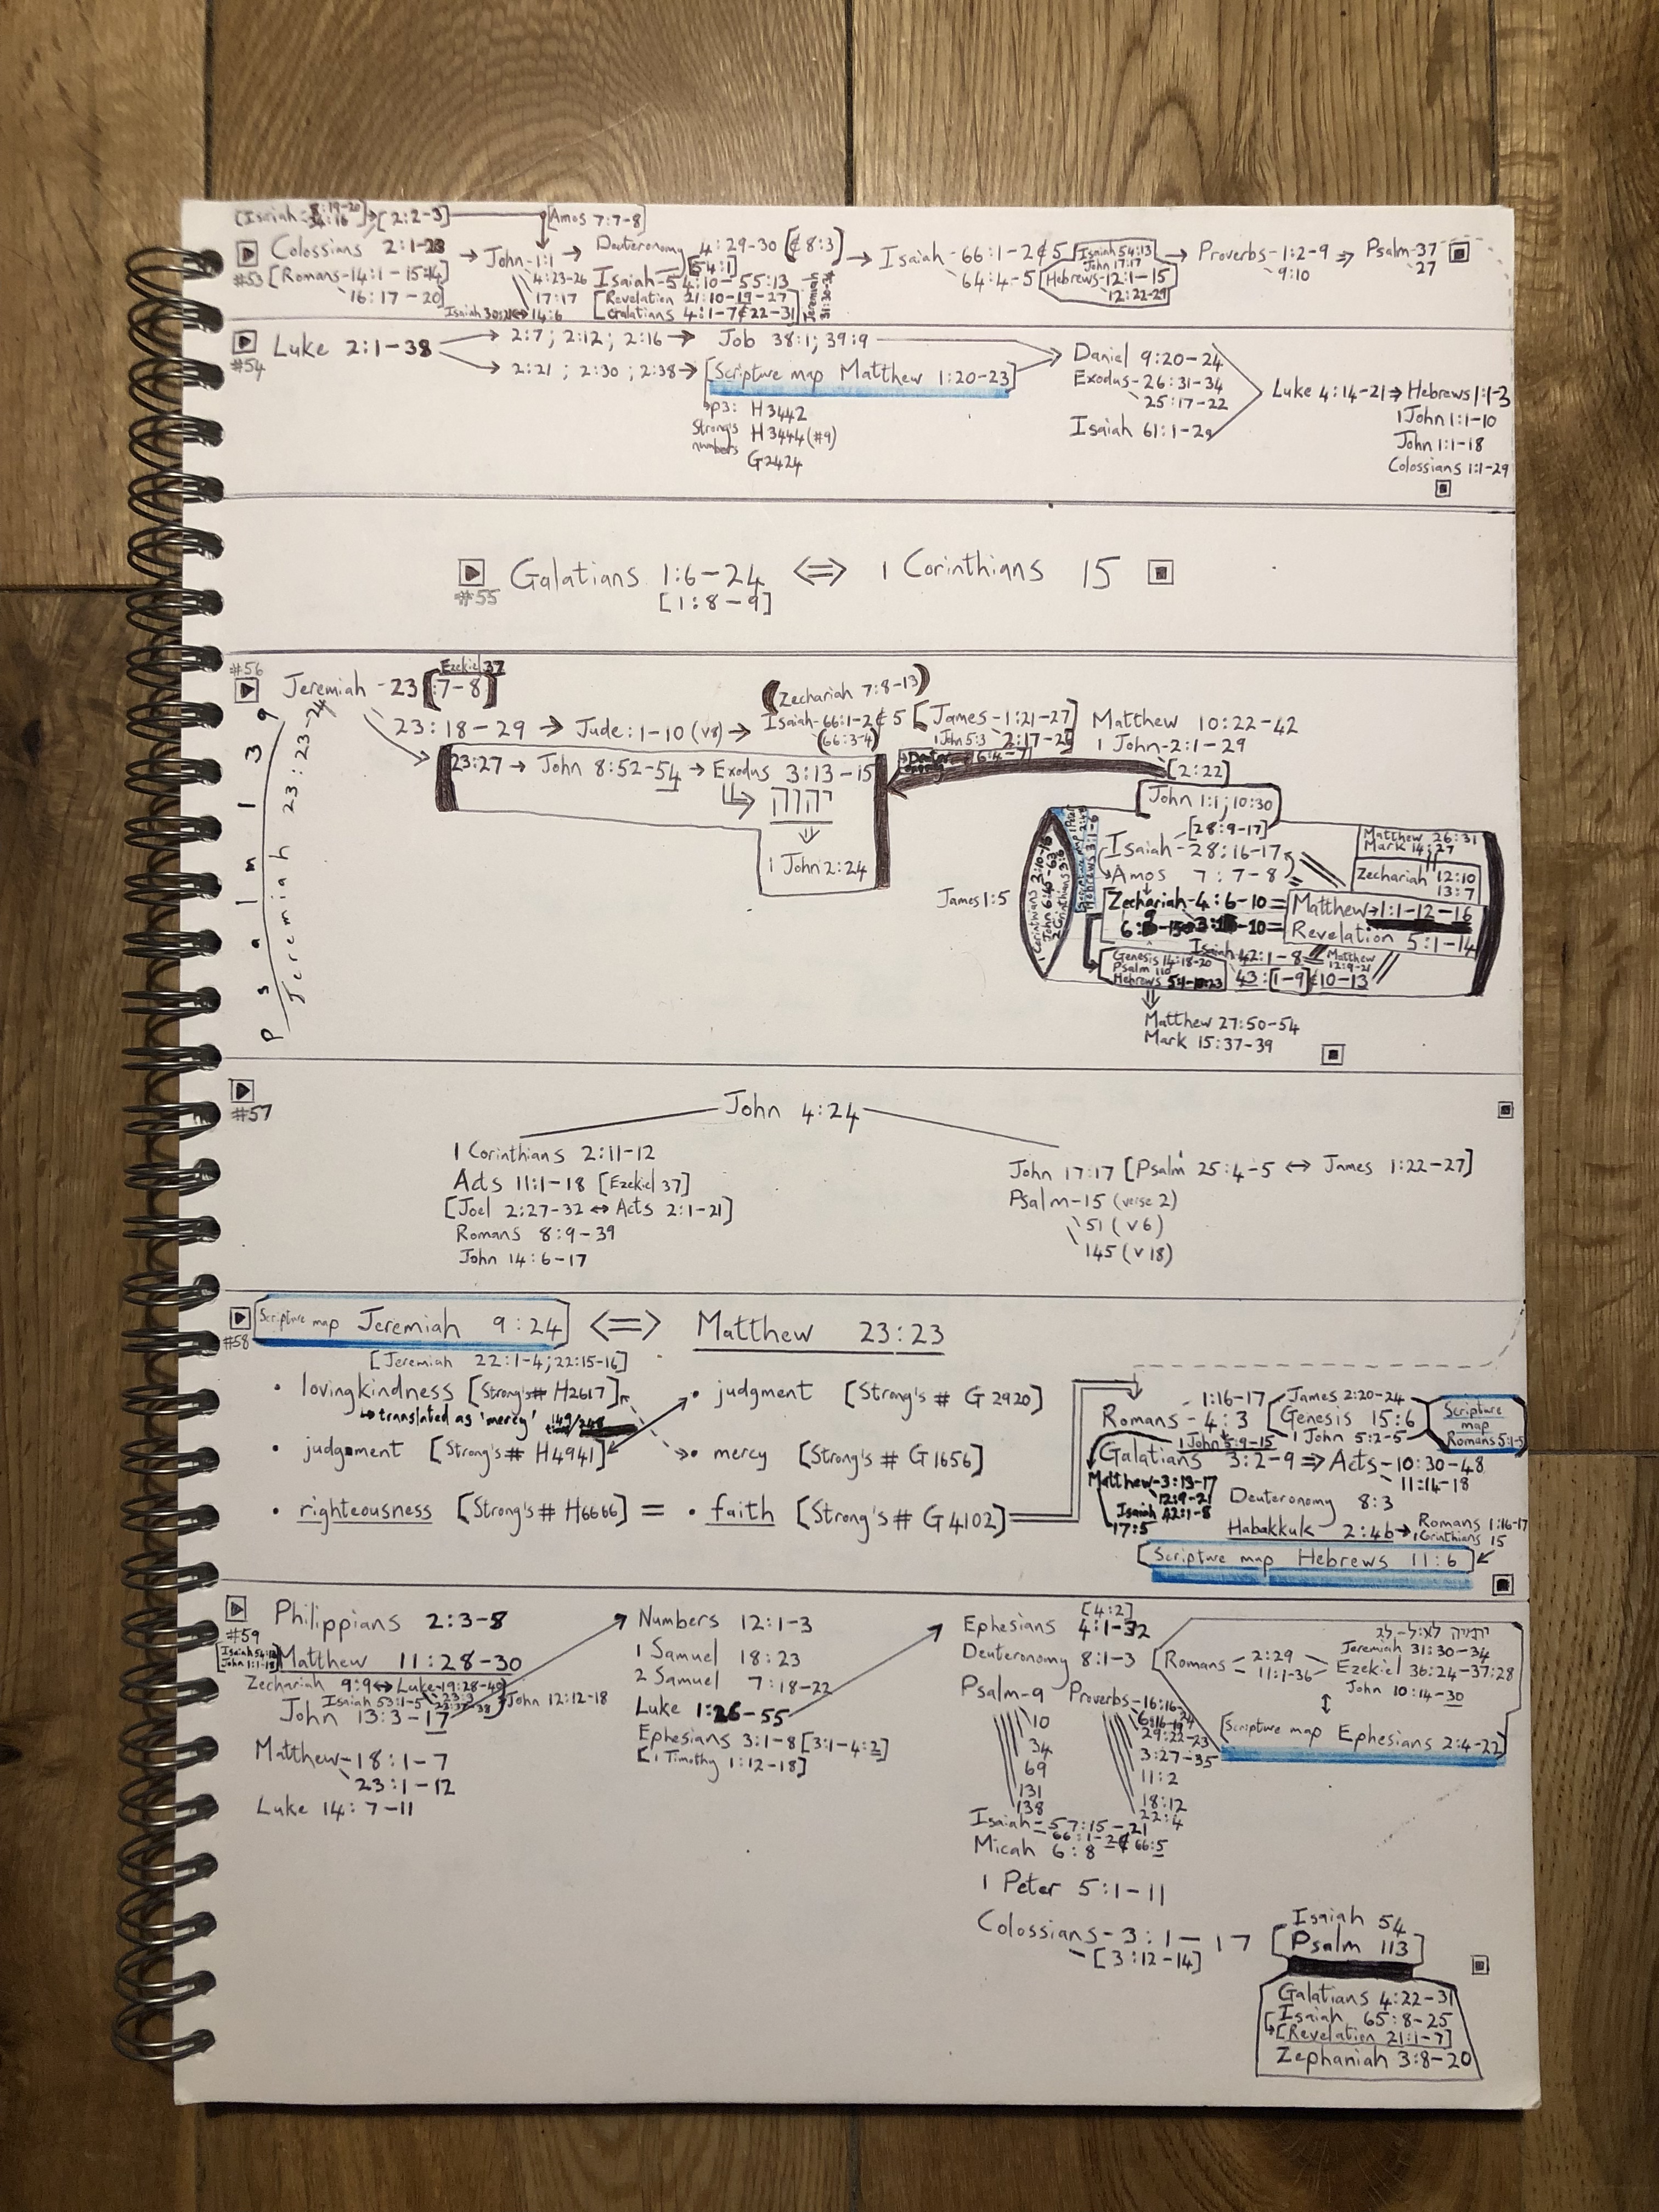 [Isaiah-8:19-20 → [2:2-3] [Amos 7:7-8]
34:16
Colossians 2:1-23 → John-1:1 → Deuteronomy 4:29-30 [¢ 8:3] → Isaiah-66:1-2 ¢ 5 [Isaiah 54:13 → Proverbs-1:2-9 ⇒ Psalm-37
#53 [Romans-14:1-15:4] 4:23-26 [54:1] 64:4-5 John 17:17 9:10 27
16:17-20] 17:17 Isaiah-54:10-55:13 [Hebrews-12:1-15]
Isaiah 30:21 ↔ 14:6 [Revelation 21:10-19-27 12:22-29
[Galatians 4:1-7 ¢ 22-31] Jeremiah 31:30-34
Luke 2:1-38 → 2:7; 2:12; 2:16 → Job 38:1; 39:9
#54 → 2:21; 2:30; 2:38 → [Scripture map Matthew 1:20-23]
Daniel 9:20-24
Exodus-26:31-34
25:17-22
Isaiah 61:1-2a
p3: H3442
Strong's H3444 (#9)
numbers G2424
Luke 4:14-21 ⇒ Hebrews 1:1-3
1 John 1:1-10
John 1:1-18
Colossians 1:1-29
Galatians 1:6-24 ⇔ 1 Corinthians 15
#55 [1:8-9]
#56 Ezekiel 37
Jeremiah -23 [:7-8]
(Zechariah 7:8-13)
23:18-29 → Jude:1-10 (v8) → Isaiah-66:1-2 ¢ 5 [James-1:21-27] Matthew 10:22-42
(66:3-4) 1 John 5:3 2:17-26] 1 John-2:1-29
23:27 → John 8:52-54 → Exodus 3:13-15 Deuteronomy 6:4-7 [2:22]
יהוה
1 John 2:24
Psalm 139
Jeremiah 23:23-24
John 1:1; 10:30
James 1:5
1 Corinthians 2:10-16
John 6:45-63
2 Corinthians 3:6
Hebrews 3:1-6
[28:9-17]
Isaiah-28:16-17
Amos 7:7-8
Zechariah-4:6-10 =
Matthew 26:31
Mark 14:27
Zechariah 12:10
13:7
Matthew 1:1-12-16
Revelation 5:1-14
Isaiah 42:1-8 = Matthew
12:9-21
43:[1-9] ¢ 10-13
Genesis 14:18-20
Psalm 110
Matthew 27:50-54
Mark 15:37-39
#57
John 4:24
1 Corinthians 2:11-12
Acts 11:1-18 [Ezekiel 37]
[Joel 2:27-32 ↔ Acts 2:1-21]
Romans 8:9-39
John 14:6-17
John 17:17 [Psalm 25:4-5 ↔ James 1:22-27]
Psalm-15 (verse 2)
51 (v6)
145 (v18)
#58 Scripture map Jeremiah 9:24 ⇔ Matthew 23:23
[Jeremiah 22:1-4; 22:15-16]
• lovingkindness [Strong's# H2617]
↳ translated as 'mercy' 149/248
• judgment [Strong's# H4941]
• righteousness [Strong's# H6666] =
• judgment [Strong's # G2920]
• mercy [Strong's # G1656]
• faith [Strong's # G4102]
1:16-17 James 2:20-24
Romans - 4:3 [Genesis 15:6
1 John 5:9-15 1 John 5:2-5
Scripture
map
Romans 5:1-5
Galatians 3:2-9 ⇒ Acts-10:30-48
11:14-18
Matthew-3:13-17
12:9-21
Isaiah 42:1-8
17:5
Deuteronomy 8:3
Habakkuk 2:4b → Romans 1:16-17
1 Corinthians 15
[Scripture map Hebrews 11:6]
#59
Philippians 2:3-8
[Isaiah 54:13
John 1:1-18]
Matthew 11:28-30
Zechariah 9:9 ↔ Luke-19:28-40
Isaiah 53:1-5 John 12:12-18
John 13:3-17
Matthew-18:1-7
23:1-12
Luke 14:7-11
Numbers 12:1-3
1 Samuel 18:23
2 Samuel 7:18-22
Luke 1:26-55
Ephesians 3:1-8 [3:1-4:2]
[1 Timothy 1:12-18]
[4:2]
Ephesians 4:1-32
Deuteronomy 8:1-3
Psalm-9
10
34
69
131
138
Proverbs-16:16-
6:16-19
29:22-23
3:27-35
11:2
18:12
22:4
Isaiah-57:15-21
66:1-2 ¢ 66:5
Micah 6:8
1 Peter 5:1-11
Colossians-3:1-17
[3:12-14]
Romans - 2:29
11:1-36
Jeremiah 31:30-34
Ezekiel 36:24-37:28
John 10:14-30
[Scripture map Ephesians 2:4-22]
Isaiah 54
[Psalm 113]
Galatians 4:22-31
Isaiah 65:8-25
[Revelation 21:1-7]
Zephaniah 3:8-20